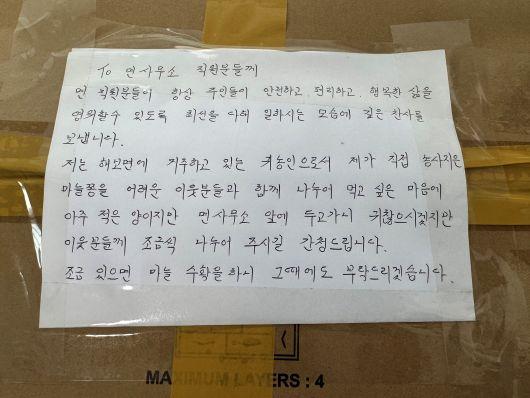 To 면사무소 직원분들께
면 직원분들이 항상 주민들이 안전하고, 편리하고, 행복한 삶을
영위할수 있도록 최선을 다해 일하시는 모습에 깊은 찬사를
보냅니다.
저는 해보면에 거주하고 있는 농인으로서 제가 직접 농사지은
마늘쫑을 어려운 이웃분들과 함께 나누어 먹고 싶은 마음에
아주 적은 양이지만 면사무소 앞에 두고가니 귀찮으시겠지만
이웃분들께 조금씩 나누어 주시길 간청드립니다.
조금 있으면 마늘 수확을 하니 그때에도 부탁드리겠습니다.
MAXIMUM LAYERS : 4